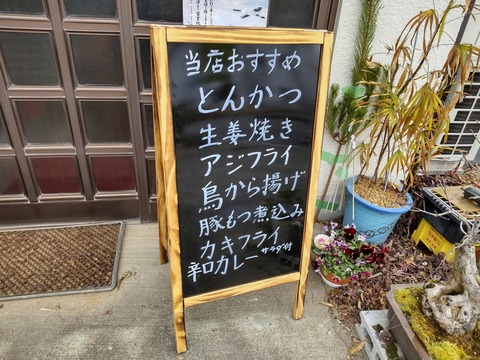 当店おすすめ
とんかつ
生姜焼き
アジフライ
鳥から揚げ
豚もつ煮込み
カキフライ
辛口カレー サラダ付